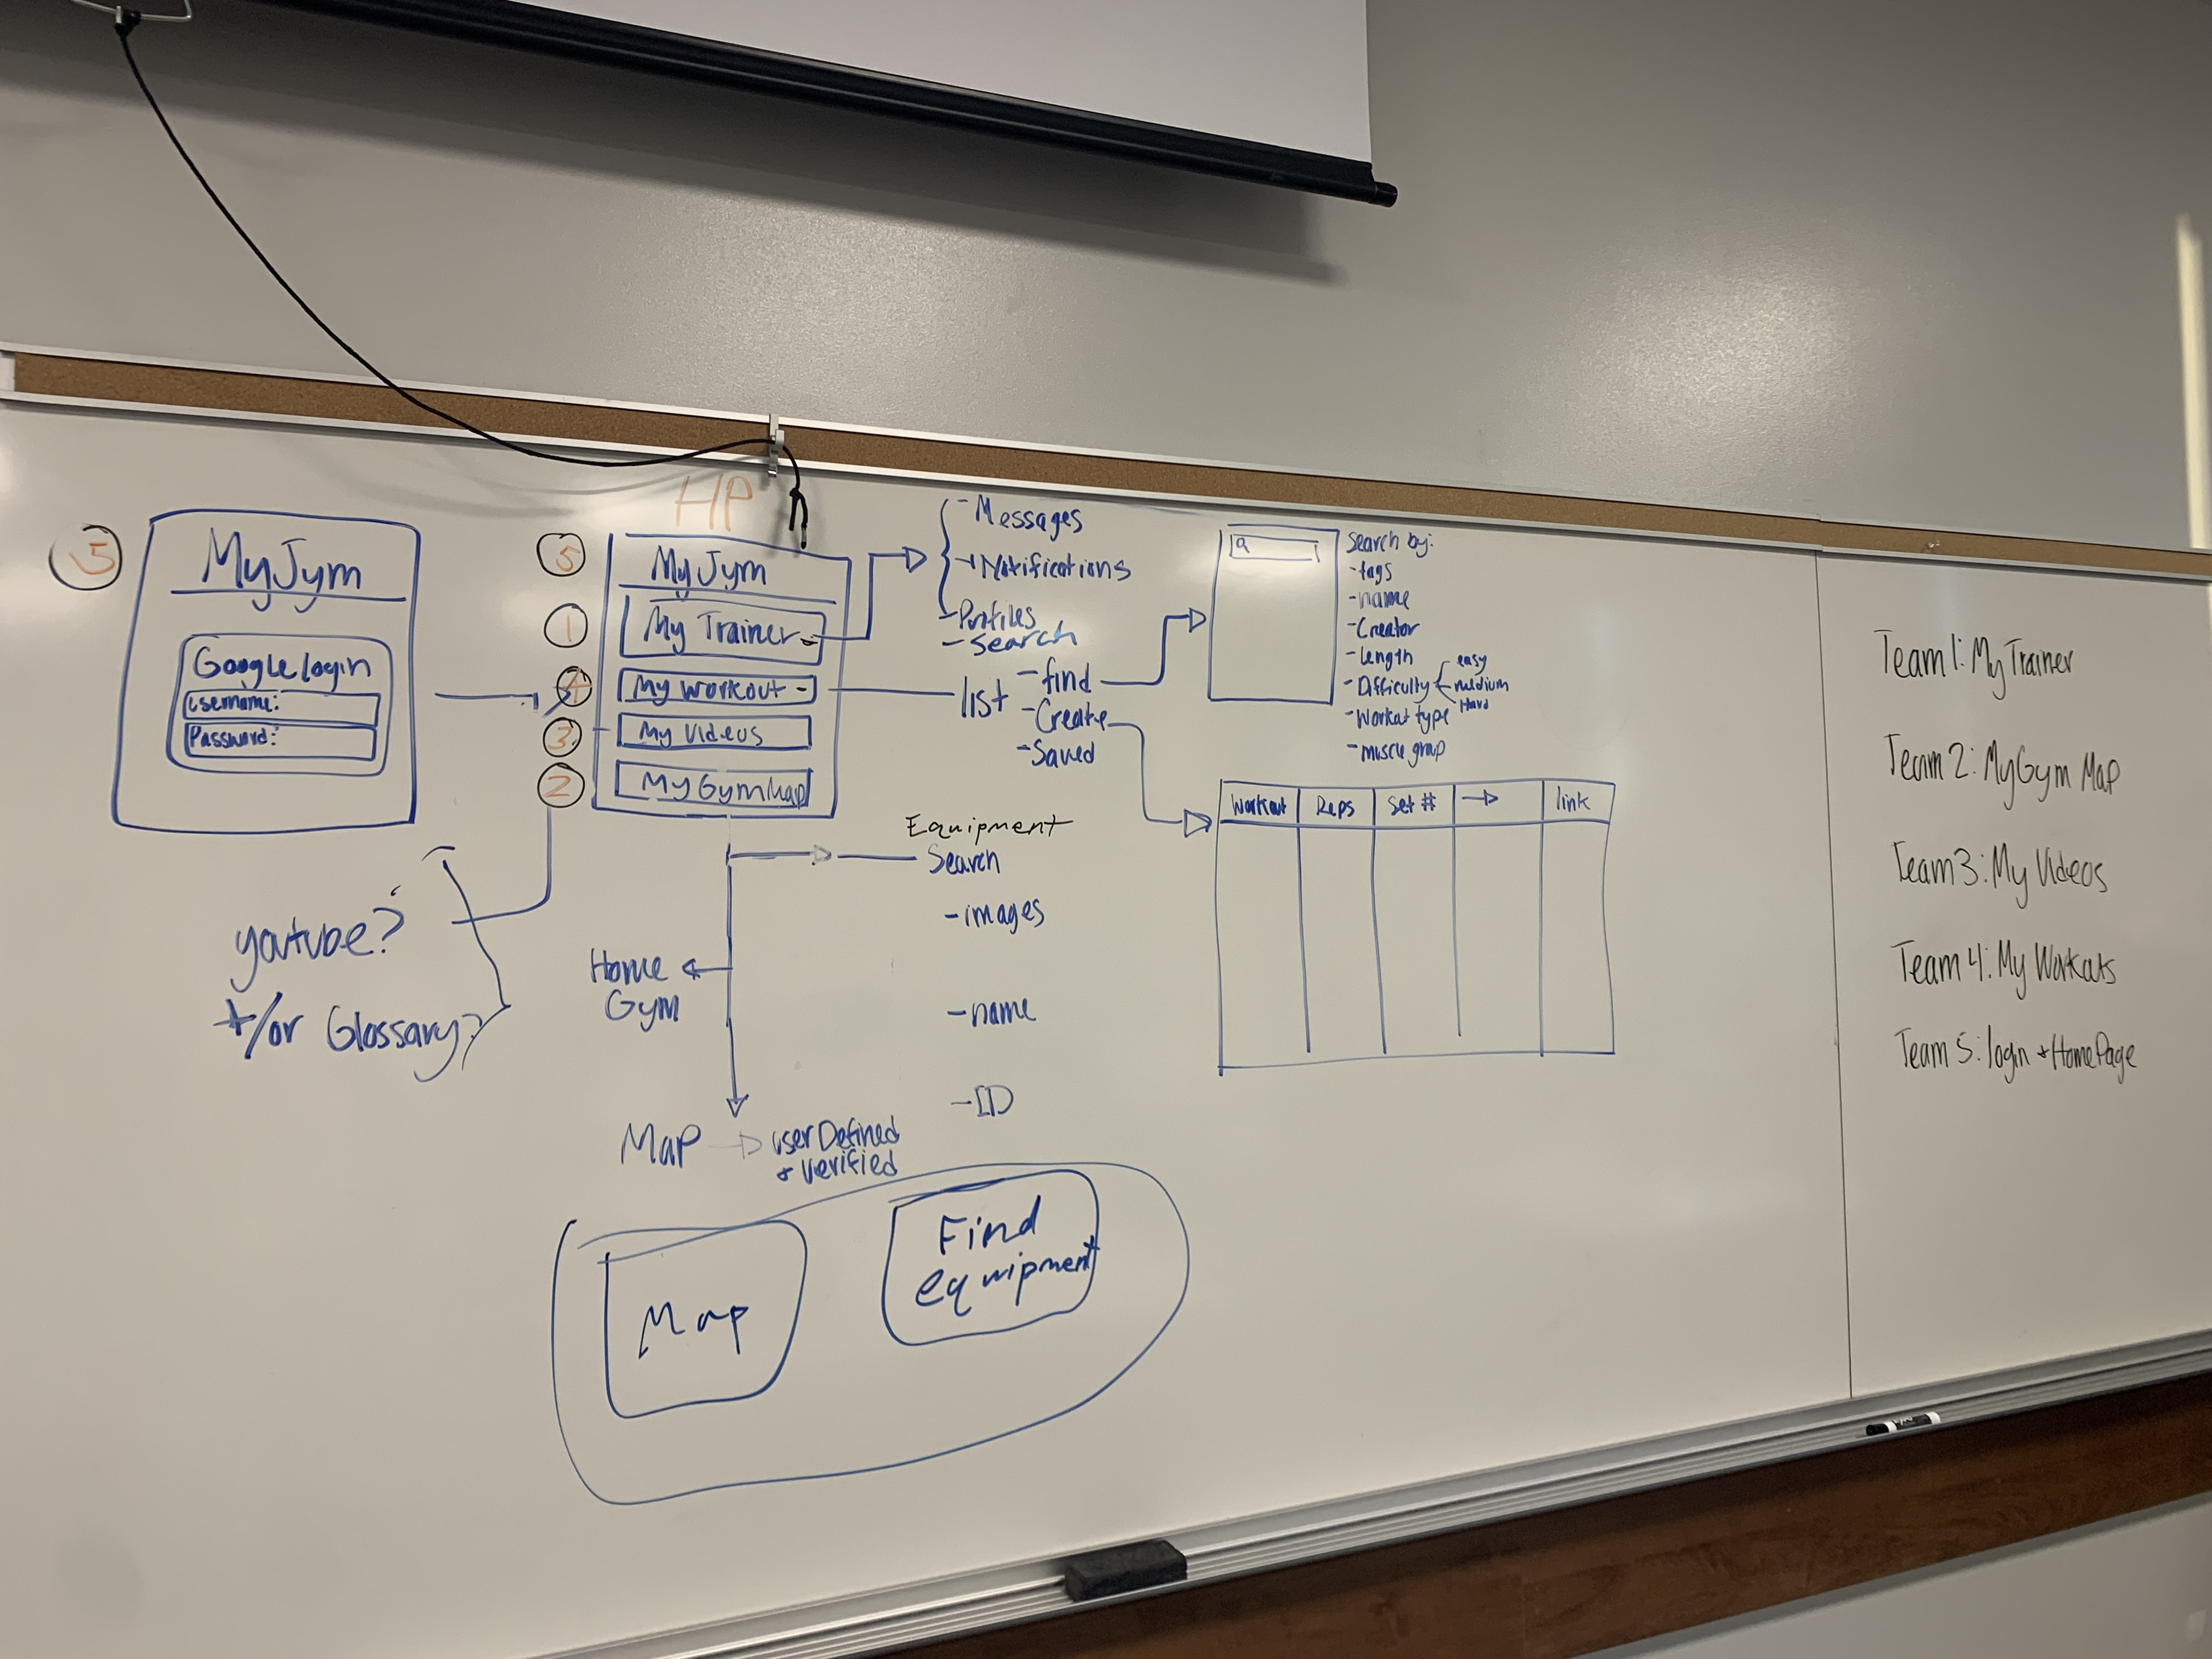 5
MyJym
Google login
username:
Password:
HP
5
1
4
3
2
MyJym
My Trainer
My Workout
My Videos
My GymMap
- Messages
- Notifications
- Profiles
- Search
list
- find
- Create
- Saved
Search by:
- tags
- name
- Creator
- length
- Difficulty
easy
medium
Hard
- Workout type
- muscle group
Workout Reps Set # → link
Equipment
Search
- images
- name
- ID
youtube?
+/or Glossary?
Home
Gym
Map → user Defined
+ verified
Map
Find
equipment
Team 1: My Trainer
Team 2: MyGym Map
Team 3: My Videos
Team 4: My Workouts
Team 5: login + HomePage